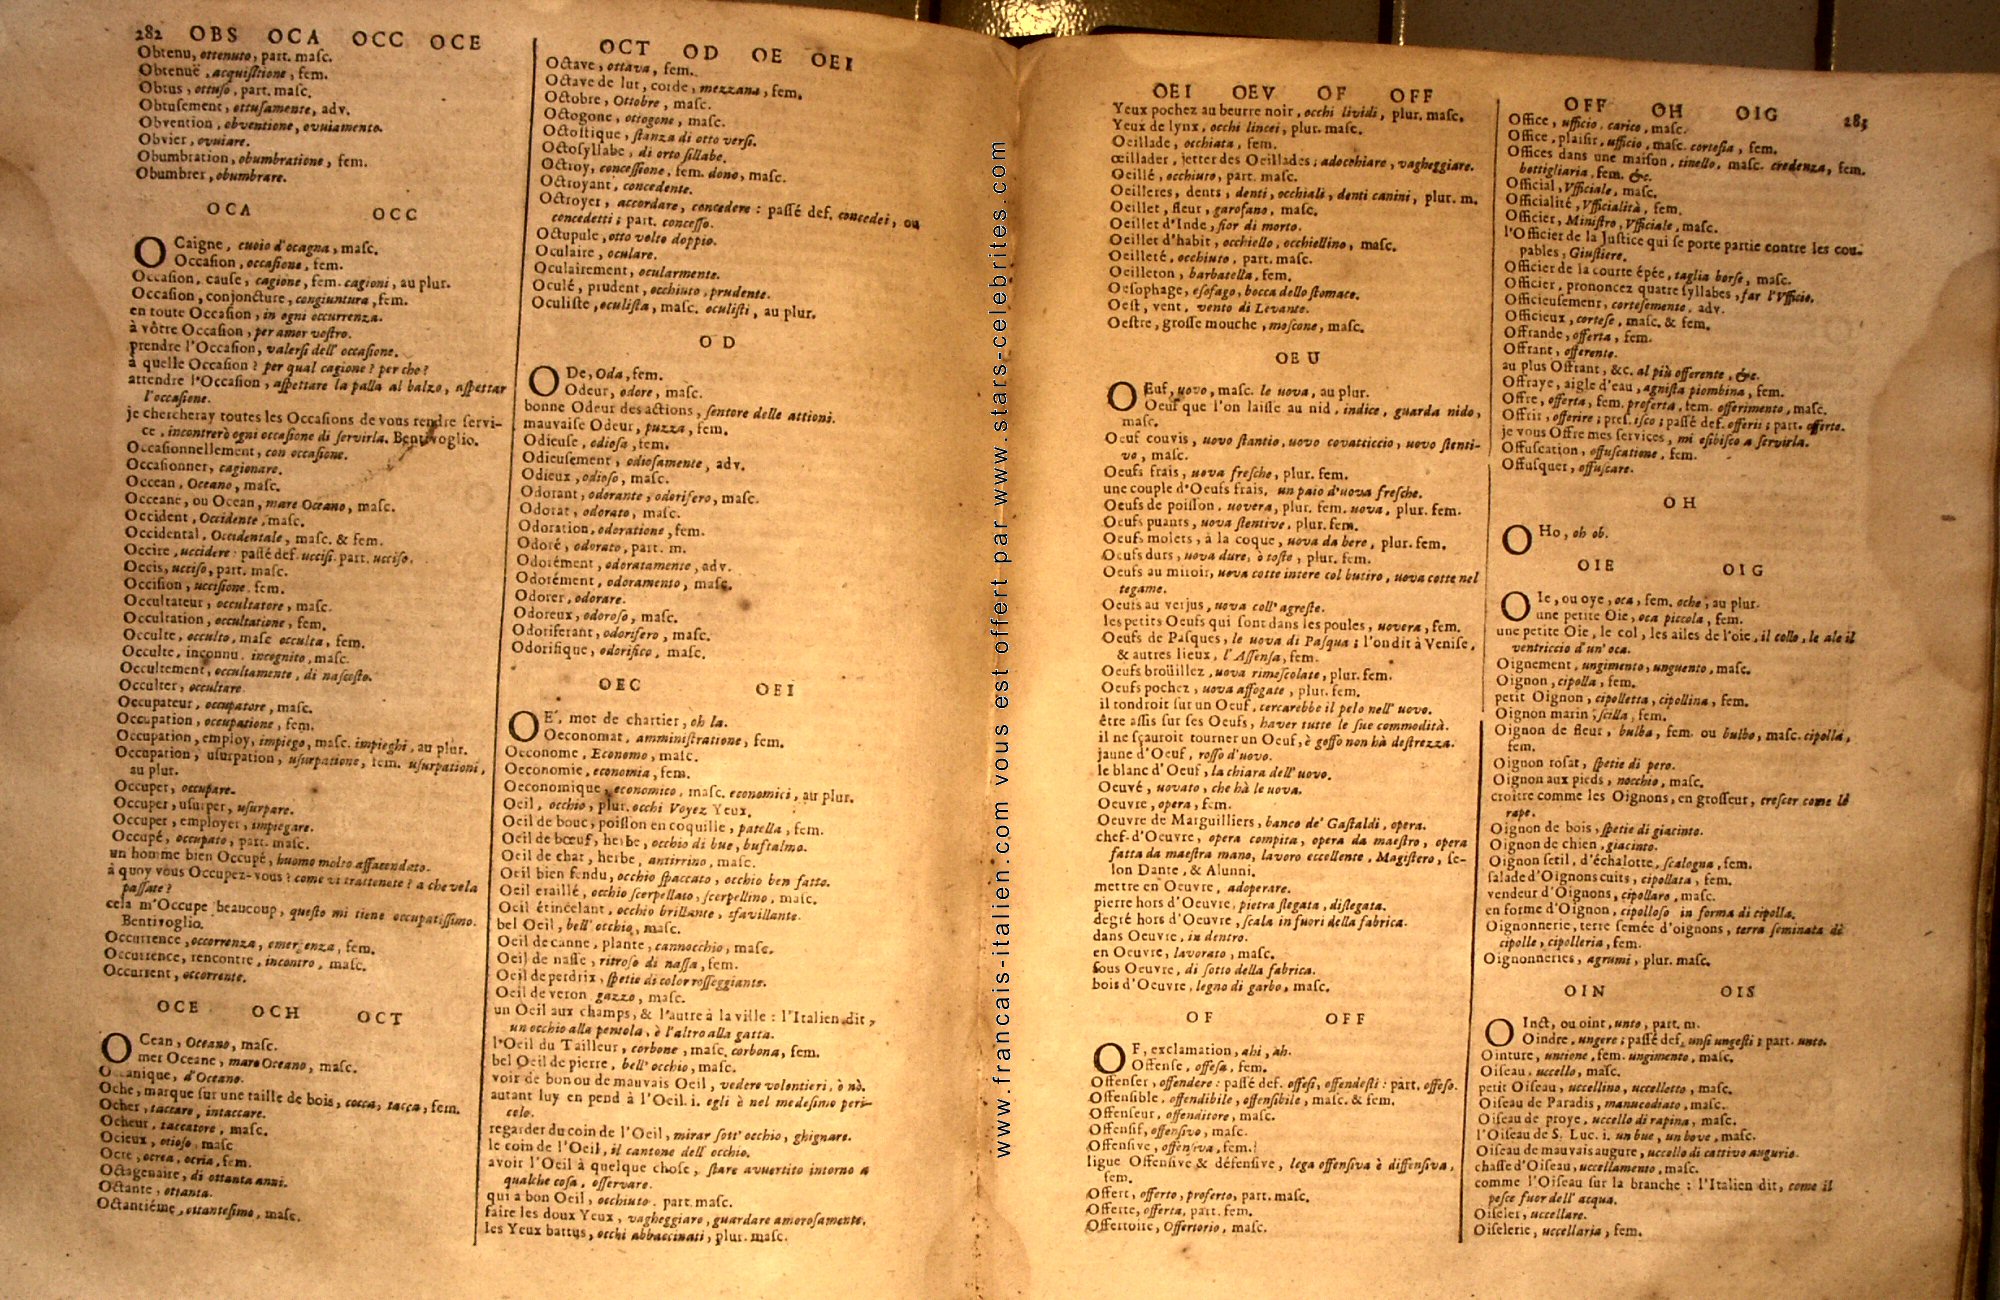 282 OBS OCA OCC OCE
Obtenu, ottenuto, part. masc.
Obtenuë, acquisitione, fem.
Obtus, ottuso, part. masc.
Obtusement, ottusamente, adv.
Obvention, obventione, ovuiamento.
Obvier, ovuiare.
Obumbration, obumbratione, fem.
Obumbrer, obumbrare.
OCA OCC
OCaigne, cuoio d'ocagna, masc.
Occasion, occasione, fem.
Occasion, cause, cagione, fem. cagioni, au plur.
Occasion, conjoncture, congiuntura, fem.
en toute Occasion, in ogni occurrenza.
à vôtre Occasion, per amor vostro.
prendre l'Occasion, valersi dell' occasione.
à quelle Occasion ? per qual cagione ? per che ?
attendre l'Occasion, aspettare la palla al balzo, aspettar
l'occasione.
je chercheray toutes les Occasions de vous rendre servi-
ce, incontrerò ogni occasione di servirla. Bentivoglio.
Occasionnellement, con occasione.
Occasionner, cagionare.
Occean, Oceano, masc.
Occeane, ou Ocean, mare Oceano, masc.
Occident, Occidente, masc.
Occidental, Occidentale, masc. & fem.
Occire, uccidere : passé def. uccisi. part. ucciso.
Occis, ucciso, part. masc.
Occision, uccisione, fem.
Occultateur, occultatore, masc.
Occultation, occultatione, fem.
Occulte, occulto, masc occulta, fem.
Occulte, inconnu. incognito, masc.
Occultement, occultamente, di nascosto.
Occulter, occultare
Occupateur, occupatore, masc.
Occupation, occupatione, fem.
Occupation, employ, impiego, masc. impieghi, au plur.
Occupation, usurpation, usurpatione, fem. usurpationi,
au plur.
Occuper, occupare.
Occuper, usurper, usurpare.
Occuper, employer, impiegare.
Occupé, occupato, part. masc.
un homme bien Occupé, huomo molto affacendato.
à quoy vous Occupez-vous ? come vi trattenete ? a che vela
passate ?
cela m'Occupe beaucoup, questo mi tiene occupatissimo.
Bentivoglio.
Occurrence, occorrenza, emergenza, fem.
Occurrence, rencontre, incontro, masc.
Occurrent, occorrente.
OCE OCH OCT
OCean, Oceano, masc.
mer Oceane, mare Oceano, masc.
Oceanique, d'Oceano.
Oche, marque sur une taille de bois, cocca, tacca, fem.
Ocher, taccare, intaccare.
Ocheur, taccatore, masc.
Ocieux, otioso, masc
Ocre, ocrea, ocria, fem.
Octagenaire, di ottanta anni.
Octante, ottanta.
Octantiéme, ottantesimo, masc.
OCT OD OE OEI
Octave, ottava, fem.
Octave de lut, corde, mezzana, fem.
Octobre, Ottobre, masc.
Octogone, ottogone, masc.
Octostique, stanza di otto versi.
Octosyllabe, di otto sillabe.
Octroy, concessione, fem. dono, masc.
Octroyant, concedente.
Octroyer, accordare, concedere : passé def. concedei, ou
concedetti ; part. concesso.
Octupule, otto volte doppio.
Oculaire, oculare.
Oculairement, ocularmente.
Oculé, prudent, occhiuto, prudente.
Oculiste, oculista, masc. oculisti, au plur.
O D
ODe, Oda, fem.
Odeur, odore, masc.
bonne Odeur des actions, sentore delle attioni.
mauvaise Odeur, puzza, fem.
Odieuse, odiosa, fem.
Odieusement, odiosamente, adv.
Odieux, odioso, masc.
Odorant, odorante, odorifero, masc.
Odorat, odorato, masc.
Odoration, odoratione, fem.
Odoré, odorato, part. m.
Odorément, odoratamente, adv.
Odorément, odoramento, masc.
Odorer, odorare.
Odoreux, odoroso, masc.
Odoriferant, odorifero, masc.
Odorifique, odorifico, masc.
OEC OEI
OE, mot de chartier, oh la.
Oeconomat, amministratione, fem.
Oeconome, Economo, masc.
Oeconomie, economia, fem.
Oeconomique, economico, masc. economici, au plur.
Oeil, occhio, plur. occhi Voyez Yeux.
Oeil de bouc, poisson en coquille, patella, fem.
Oeil de bœuf, herbe, occhio di bue, buftalmo.
Oeil de chat, herbe, antirrino, masc.
Oeil bien fendu, occhio spaccato, occhio ben fatto.
Oeil eraillé, occhio scerpellato, scerpellino, masc.
Oeil étincelant, occhio brillante, sfavillante.
bel Oeil, bell' occhio, masc.
Oeil de canne, plante, cannocchio, masc.
Oeil de nasse, ritroso di nassa, fem.
Oeil de perdrix, spetie di color rosseggiante.
Oeil de veron gazzo, masc.
un Oeil aux champs, & l'autre à la ville : l'Italien dit,
un occhio alla pentola, è l'altro alla gatta.
l'Oeil du Tailleur, corbone, masc. corbona, fem.
bel Oeil de pierre, bell' occhio, masc.
voir de bon ou de mauvais Oeil, vedere volontieri, ò nò.
autant luy en pend à l'Oeil. i. egli è nel medesimo peri-
colo.
regarder du coin de l'Oeil, mirar sott' occhio, ghignare.
le coin de l'Oeil, il cantone dell' occhio.
avoir l'Oeil à quelque chose, stare avvertito intorno a
qualche cosa, osservare.
qui a bon Oeil, occhiuto. part. masc.
faire les doux Yeux, vagheggiare, guardare amorosamente.
les Yeux battus, occhi abbaccinati, plur. masc.
www.francais-italien.com vous est offert par www.stars-celebrites.com
OEI OEV OF OFF
Yeux pochez au beurre noir, occhi lividi, plur. masc.
Yeux de lynx, occhi lincei, plur. masc.
Oeillade, occhiata, fem.
œillader, jetter des Oeillades ; adocchiare, vagheggiare.
Oeillé, occhiuto, part. masc.
Oeilleres, dents, denti, occhiali, denti canini, plur. m.
Oeillet, fleur, garofano, masc.
Oeillet d'Inde, fior di morto.
Oeillet d'habit, occhiello, occhiellino, masc.
Oeilleté, occhiuto, part. masc.
Oeilleton, barbatella, fem.
Oesophage, esofago, bocca dello stomaco.
Oest, vent, vento di Levante.
Oestre, grosse mouche, moscone, masc.
OEU
OEuf, uovo, masc. le uova, au plur.
Oeuf que l'on laisse au nid, indice, guarda nido,
masc.
Oeuf couvis, uovo stantio, uovo covatticcio, uovo stenti-
vo, masc.
Oeufs frais, uova fresche, plur. fem.
une couple d'Oeufs frais, un paio d'uova fresche.
Oeufs de poisson, uovera, plur. fem. uova, plur. fem.
Oeufs puants, uova stentive, plur. fem.
Oeufs molets, à la coque, uova da bere, plur. fem.
Oeufs durs, uova dure, ò toste, plur. fem.
Oeufs au miroir, uova cotte intere col butiro, uova cotte nel
tegame.
Oeufs au verjus, uova coll' agreste.
les petits Oeufs qui sont dans les poules, uovera, fem.
Oeufs de Pasques, le uova di Pasqua ; l'on dit à Venise,
& autres lieux, l'Assensa, fem.
Oeufs broüillez, uova rimescolate, plur. fem.
Oeufs pochez, uova affogate, plur. fem.
il tondroit sur un Oeuf, cercarebbe il pelo nell' uovo.
être assis sur ses Oeufs, haver tutte le sue commodità.
il ne sçauroit tourner un Oeuf, è goffo non hà destrezza.
jaune d'Oeuf, rosso d'uovo.
le blanc d'Oeuf, la chiara dell' uovo.
Oeuvé, uovato, che hà le uova.
Oeuvre, opera, fem.
Oeuvre de Marguilliers, banco de' Gastaldi, opera.
chef-d'Oeuvre, opera compita, opera da maestro, opera
fatta da maestra mano, lavoro eccellente, Magistero, se-
lon Dante, & Alunni.
mettre en Oeuvre, adoperare.
pierre hors d'Oeuvre, pietra slegata, dislegata.
degré hors d'Oeuvre, scala in fuori della fabrica.
dans Oeuvre, in dentro.
en Oeuvre, lavorato, masc.
sous Oeuvre, di sotto della fabrica.
bois d'Oeuvre, legno di garbo, masc.
OF OFF
OF, exclamation, ahi, ah.
Offense, offesa, fem.
Offenser, offendere : passé def. offesi, offendesti : part. offeso.
Offensible, offendibile, offensibile, masc. & fem.
Offenseur, offenditore, masc.
Offensif, offensivo, masc.
Offensive, offensiva, fem.
ligue Offensive & défensive, lega offensiva è diffensiva,
fem.
Offert, offerto, proferto, part. masc.
Offerte, offerta, part. fem.
Offertoire, Offertorio, masc.
OFF OH OIG 283
Office, ufficio, carico, masc.
Office, plaisir, ufficio, masc. cortesia, fem.
Offices dans une maison, tinello, masc. credenza, fem.
bottigliaria, fem. &c.
Official, Vfficiale, masc.
Officialité, Vfficialità, fem.
Officier, Ministro, Vfficiale, masc.
l'Officier de la Justice qui se porte partie contre les cou-
pables, Giustiere.
Officier de la courte épée, taglia borse, masc.
Officier, prononcez quatre syllabes, far l'Vfficio.
Officieusement, cortesemente, adv.
Officieux, cortese, masc. & fem.
Offrande, offerta, fem.
Offrant, offerente.
au plus Offrant, &c. al più offerente, &c.
Offraye, aigle d'eau, agnista piombina, fem.
Offre, offerta, fem. proferta, fem. offerimento, masc.
Offrir, offerire ; pres. isco ; passé def. offerii ; part. offerto.
je vous Offre mes services, mi esibisco a servirla.
Offuscation, offuscatione, fem.
Offusquer, offuscare.
OH
OHo, oh oh.
OIE OIG
OIe, ou oye, oca, fem. oche, au plur.
une petite Oie, oca piccola, fem.
une petite Oie, le col, les ailes de l'oie, il collo, le ale il
ventriccio d'un' oca.
Oignement, ungimento, unguento, masc.
Oignon, cipolla, fem.
petit Oignon, cipolletta, cipollina, fem.
Oignon marin, scilla, fem.
Oignon de fleur, bulba, fem. ou bulbo, masc. cipolla,
fem.
Oignon rosat, spetie di pero.
Oignon aux pieds, nocchio, masc.
croitre comme les Oignons, en grosseur, crescer come le
rape.
Oignon de bois, spetie di giacinto.
Oignon de chien, giacinto.
Oignon setil, d'échalotte, scalogna, fem.
salade d'Oignons cuits, cipollata, fem.
vendeur d'Oignons, cipollaro, masc.
en forme d'Oignon, cipolloso in forma di cipolla.
Oignonnerie, terre semée d'oignons, terra seminata di
cipolle, cipolleria, fem.
Oignonneries, agrumi, plur. masc.
OIN OIS
OInct, ou oint, unto, part. m.
Oindre, ungere ; passé def. unsi ungesti ; part. unto.
Ointure, untione, fem. ungimento, masc.
Oiseau, uccello, masc.
petit Oiseau, uccellino, uccelletto, masc.
Oiseau de Paradis, manucodiato, masc.
Oiseau de proye, uccello di rapina, masc.
l'Oiseau de S. Luc. i. un bue, un bove, masc.
Oiseau de mauvais augure, uccello di cattivo augurio.
chasse d'Oiseau, uccellamento, masc.
comme l'Oiseau sur la branche : l'Italien dit, come il
pesce fuor dell' acqua.
Oiseler, uccellare.
Oiselerie, uccellaria, fem.